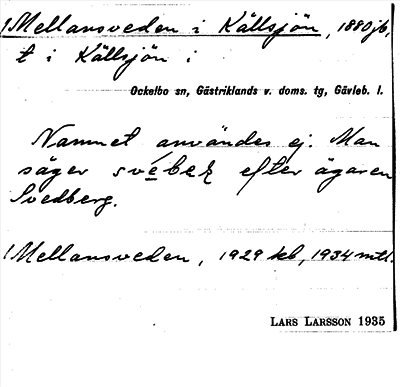 Mellansveden i Källsjön, 1880 jb,
t i Källsjön i
Ockelbo sn, Gästriklands v. doms. tg, Gävleb. l.
Namnet användes ej. Man
säger svébeʀ efter ägaren
Svedberg.
Mellansveden, 1929 kb, 1934 mtl.
LARS LARSSON 1935